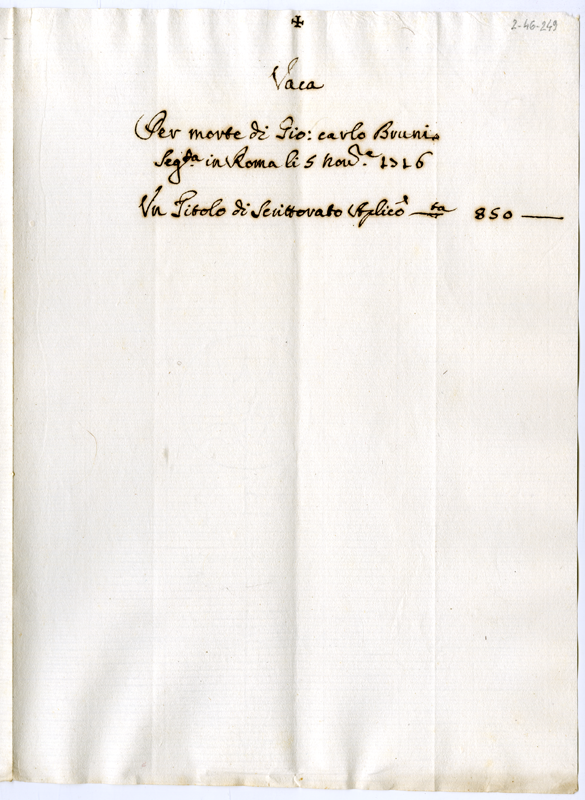 ✠
2-46-249
Vaca
Per morte di Gio: carlo Bruni
Seg.ta in Roma li 5 Nov.e 1716
Un Titolo di Scrittorato Aplico 850